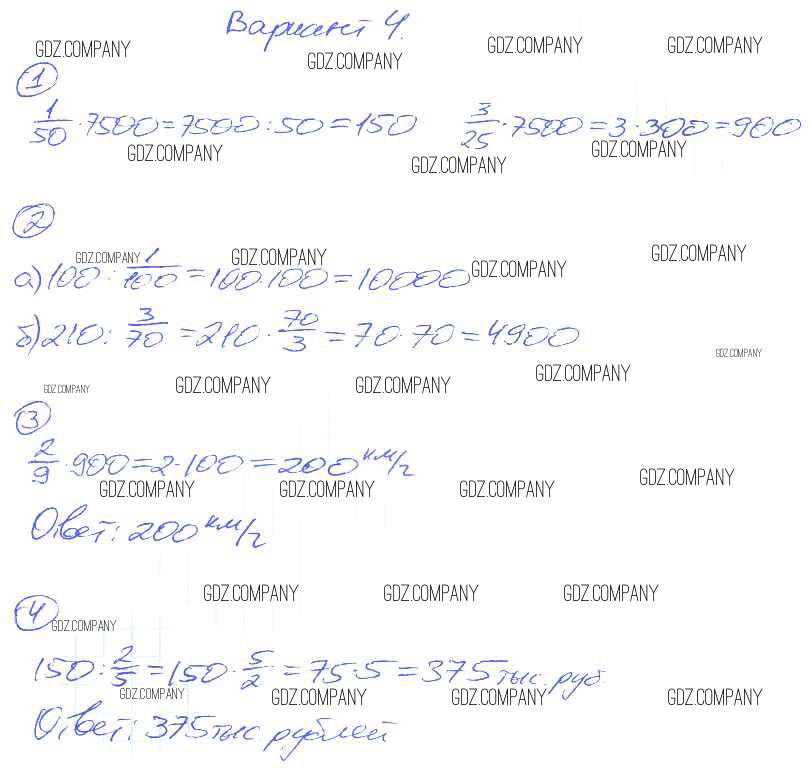 Вариант 4.
GDZ.COMPANY GDZ.COMPANY GDZ.COMPANY GDZ.COMPANY
1
1/50 · 7500 = 7500 : 50 = 150 3/25 · 7500 = 3 · 300 = 900
GDZ.COMPANY GDZ.COMPANY GDZ.COMPANY
2
GDZ.COMPANY GDZ.COMPANY GDZ.COMPANY GDZ.COMPANY
а) 100 : 1/100 = 100 · 100 = 10000
б) 210 : 3/70 = 210 · 70/3 = 70 · 70 = 4900
GDZ.COMPANY
GDZ.COMPANY GDZ.COMPANY GDZ.COMPANY GDZ.COMPANY
3
2/9 · 900 = 2 · 100 = 200 км/ч
GDZ.COMPANY GDZ.COMPANY GDZ.COMPANY GDZ.COMPANY
Ответ: 200 км/ч
GDZ.COMPANY GDZ.COMPANY GDZ.COMPANY
4
GDZ.COMPANY
150 : 2/5 = 150 · 5/2 = 75 · 5 = 375 тыс. руб.
GDZ.COMPANY GDZ.COMPANY GDZ.COMPANY GDZ.COMPANY
Ответ: 375 тыс. рублей